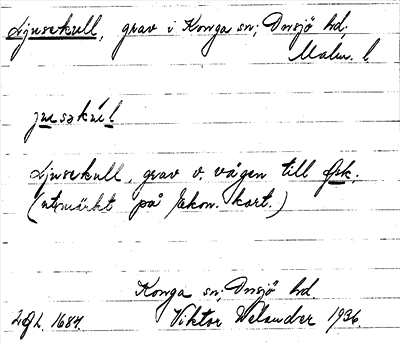 Ljusekull, grav i Konga sn; Onsjö hd,
Malm. l
Ljusekull, grav v. vägen till
(utmärkt på Ekon. kart.)
Konga sn; Onsjö hd
1684. Viktor Welander 1936.